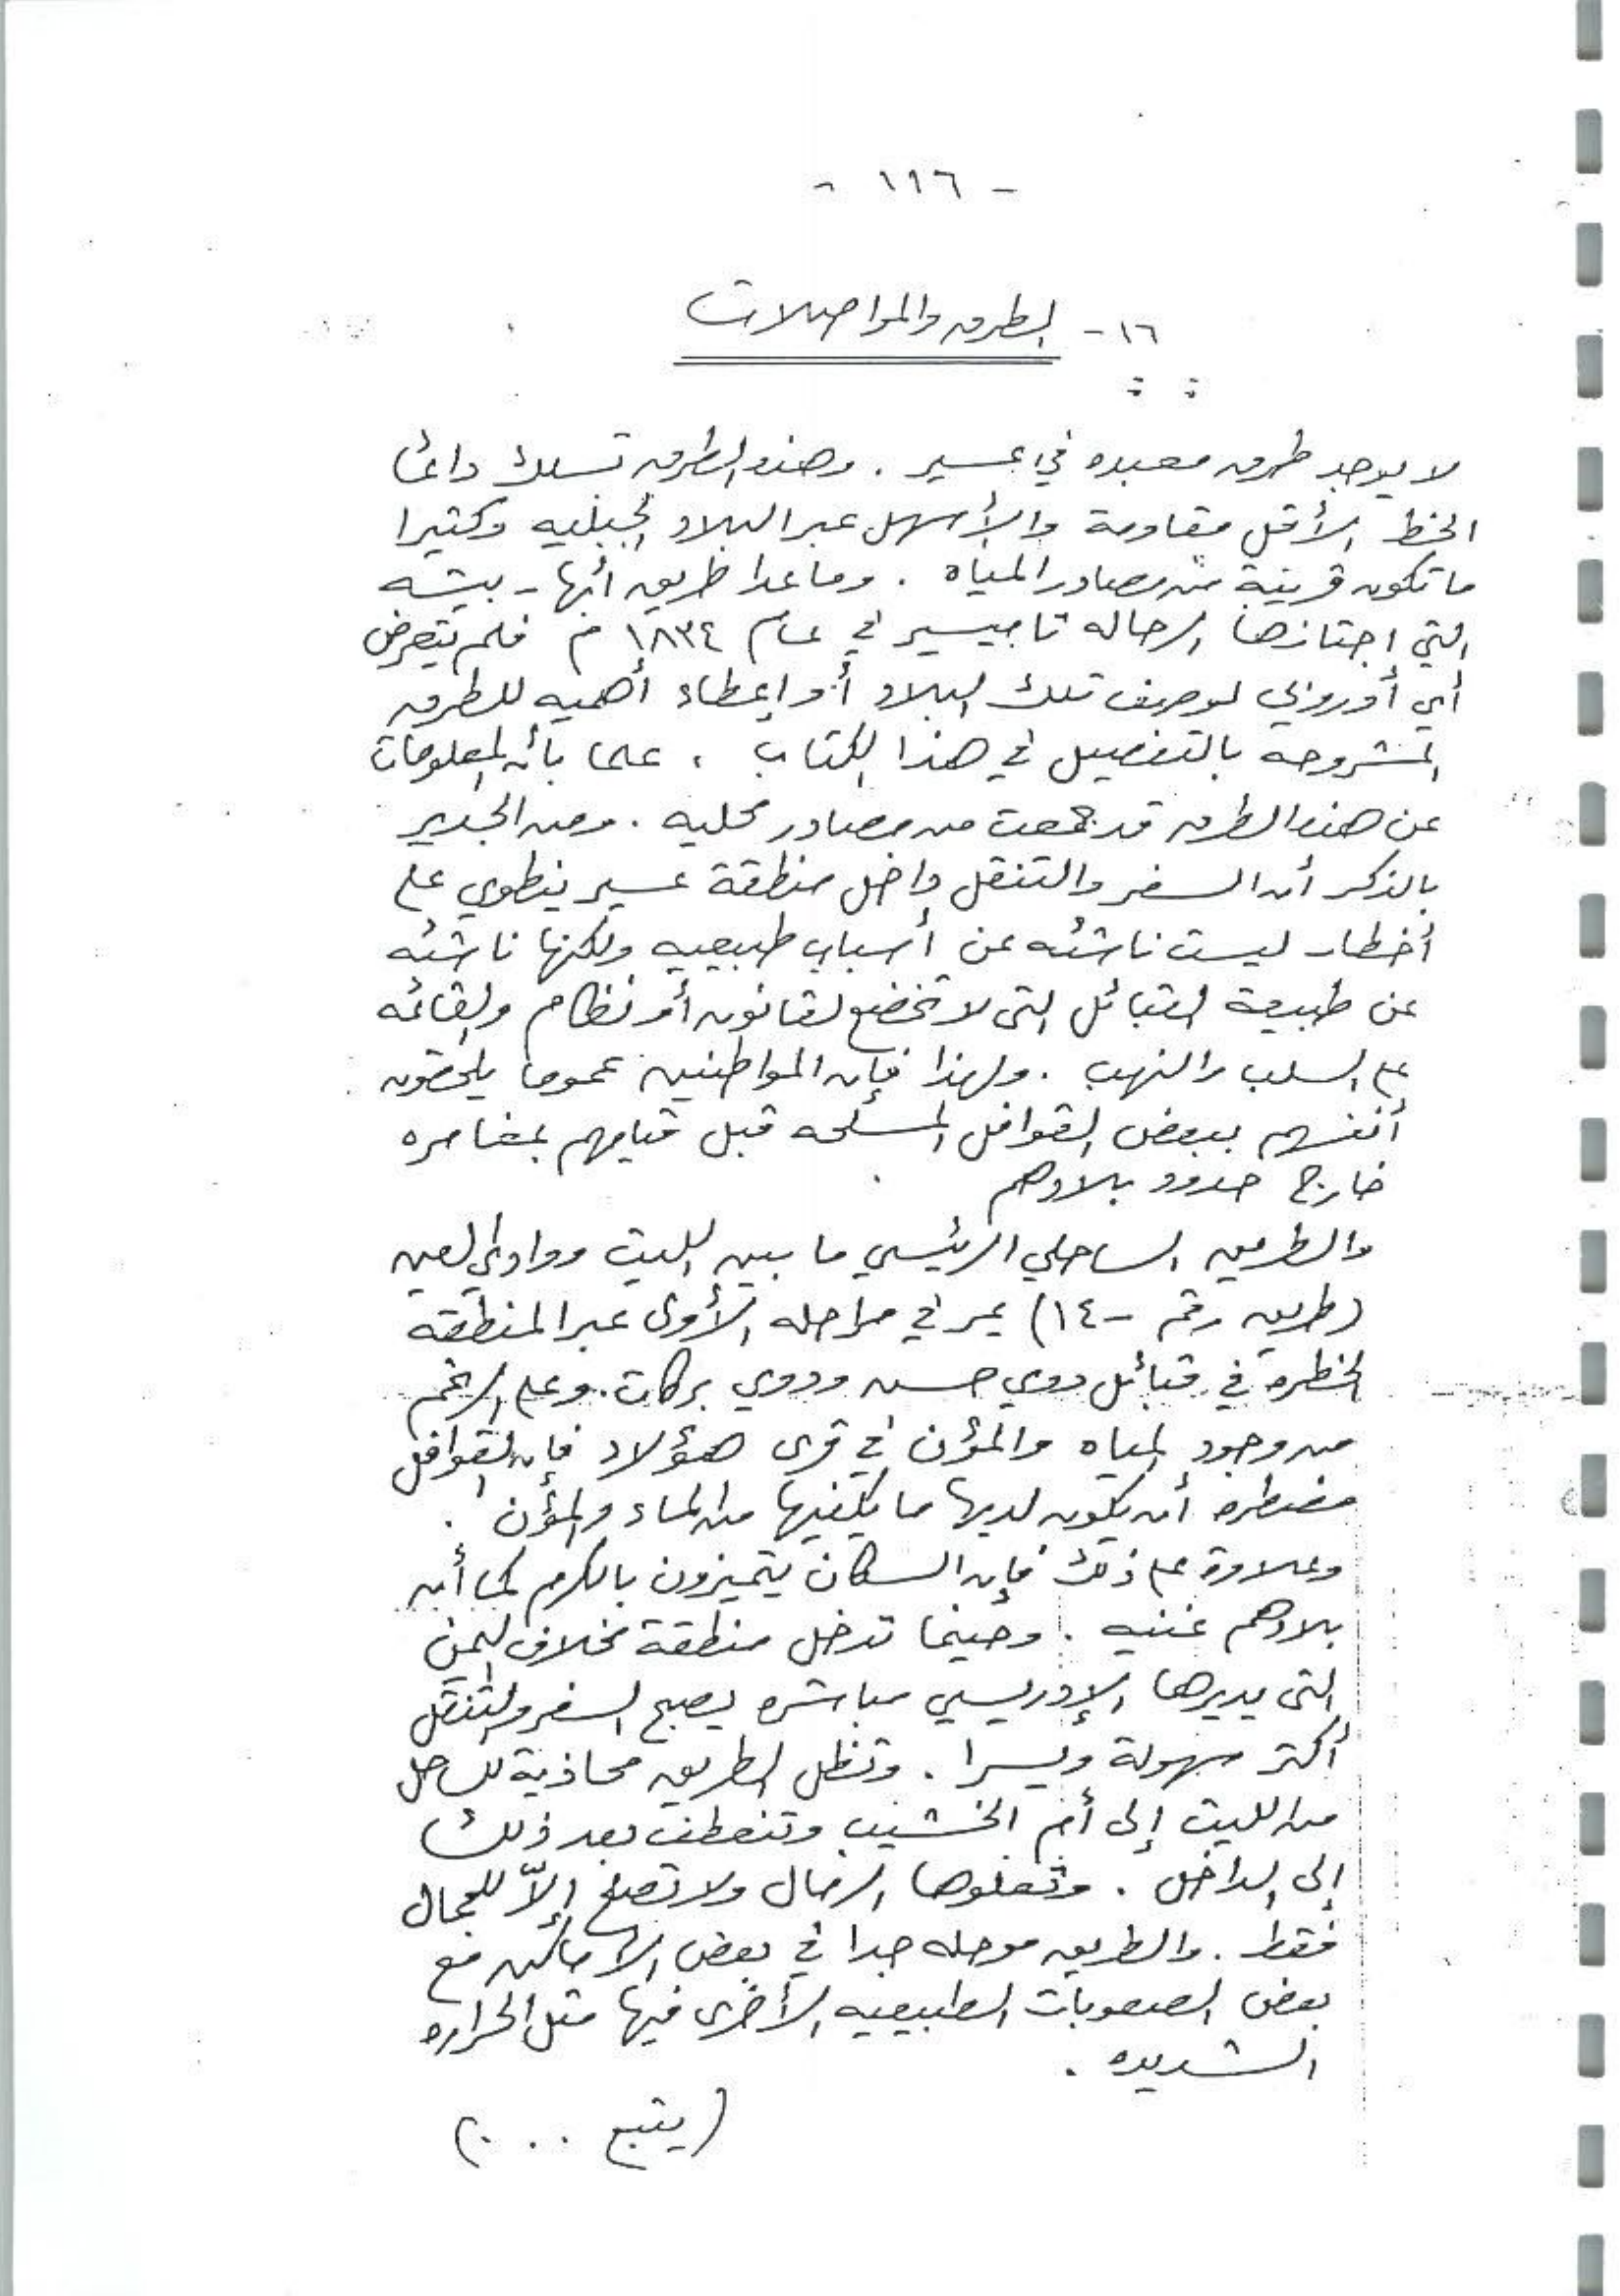 - ١١٦ -
١٦ - الطرق والمواصلات
لا يوجد طرق معبده في عسير . وهذه الطرق تسلك دائما
الخط الأقل مقاومة والأسهل عبر البلاد الجبليه وكثيرا
ما تكون قريبة من مصادر المياه . وماعدا طريق أبها - بيشه
التي اجتازها الرحاله تاميسير في عام ١٨٣٤ م فلم يتعرض
أي أوروبي لوصف تلك البلاد أو إعطاء أهميه للطرق
المشروحه بالتفصيل في هذا الكتاب ، علما بأن المعلومات
عن هذه الطرق قد جمعت من مصادر محليه . ومن الجدير
بالذكر أن السفر والتنقل داخل منطقة عسير ينطوي على
أخطار ليست ناشئه عن أسباب طبيعيه ولكنها ناشئه
عن طبيعة القبائل التي لا تخضع لقانون أو نظام والقائمه
على السلب والنهب . ولهذا فإن المواطنين عموما يلحقون
أنفسهم ببعض القوافل المسلحه قبل قيامهم بمغامره
خارج حدود بلادهم .
والطريق الساحلي الرئيسي ما بين الليث ووادي لعين
(طريق رقم - ١٤) يمر في مراحله الأولى عبر المنطقه
الخطره في قبائل ذوي حسن وذوي بركات . وعلى الرغم
من وجود المياه والمؤن في قرى هؤلاء فإن القوافل
مضطره أن يكون لديها ما يكفيها من الماء والمؤن .
وعلاوة على ذلك فإن السكان يتميزون بالكرم كما أن
بلادهم غنيه . وحينما تدخل منطقة مخلاف اليمن
التي يديرها الإدريسي مباشره يصبح السفر والتنقل
أكثر سهولة ويسرا . وتظل الطريق محاذية للساحل
من الليث إلى أم الخشيب وتنعطف بعد ذلك
إلى الداخل . وتعلوها الرمال ولا تصلح إلاّ للجمال
فقط . والطريق موحله جدا في بعض الأماكن مع
بعض الصعوبات الطبيعيه الأخرى فيها مثل الحراره
الشديده .
(يتبع . . .)